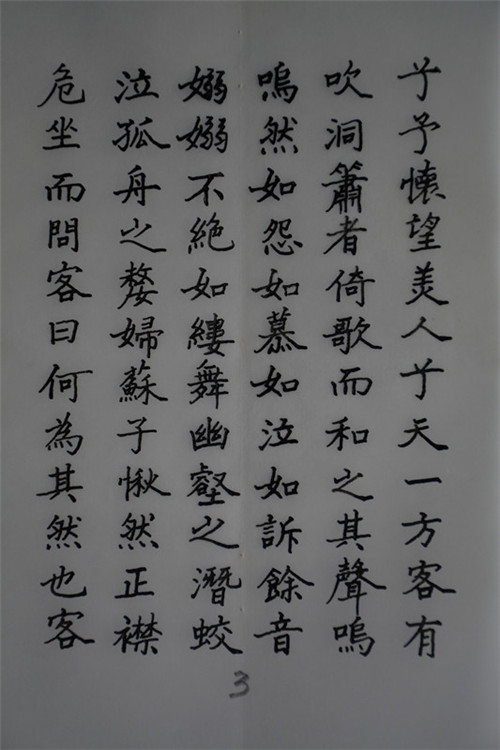 兮予懷望美人兮天一方客有
吹洞簫者倚歌而和之其聲嗚
嗚然如怨如慕如泣如訴餘音
嫋嫋不絶如縷舞幽壑之潛蛟
泣孤舟之嫠婦蘇子愀然正襟
危坐而問客曰何為其然也客
3